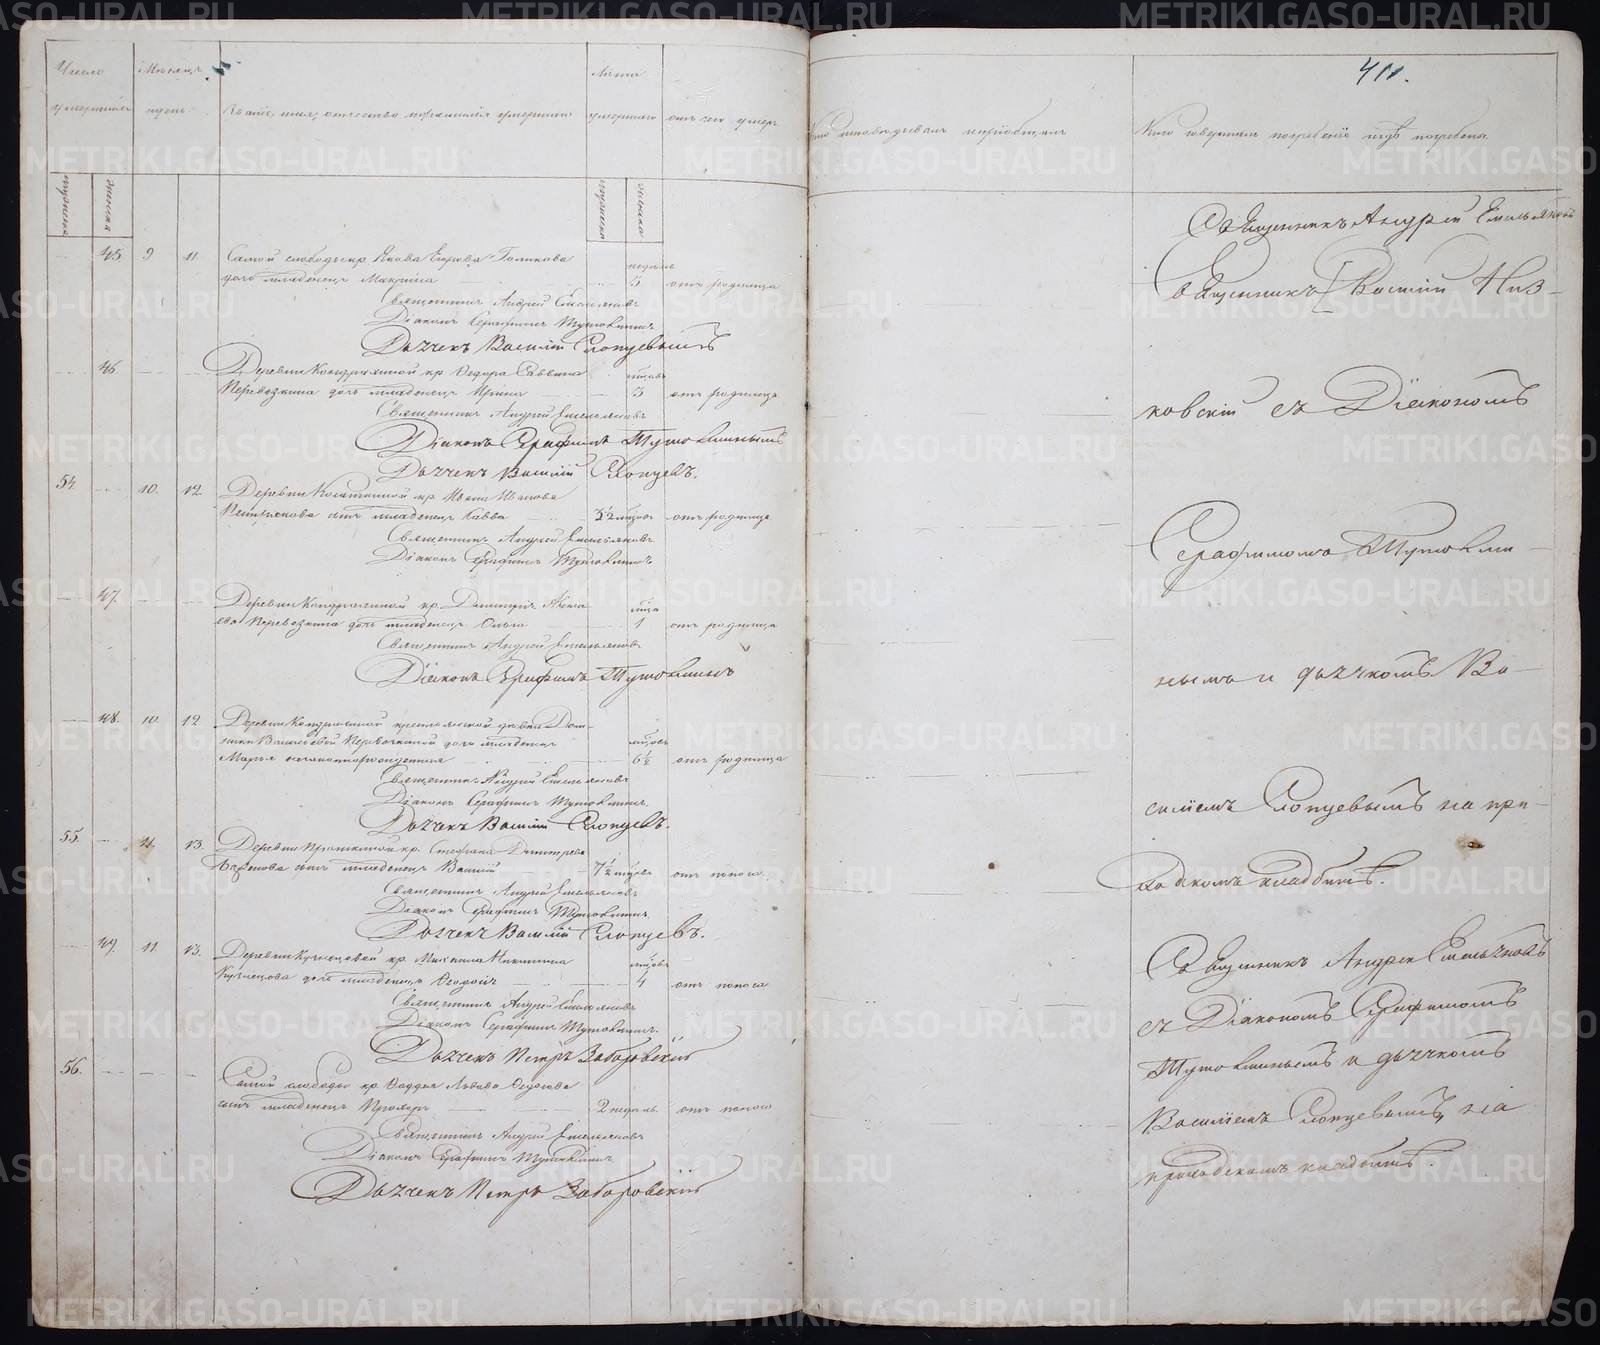 411.
Число умершихъ
Мѣсяцъ и день
Званіе, имя, отчество и фамилія умершаго
Лѣта умершаго
отъ чего умеръ
Кто исповѣдывалъ и пріобщалъ
Кто совершалъ погребеніе и гдѣ погребены.
мужеска
женска
мужеска
женска
45 9 11 Самой слободы кр. Якова Егорова Голикова недѣль
дочь младенецъ Макрина 3 отъ родимца
Священникъ Андрей Емельяновъ
Діаконъ Серафимъ Тутолминъ
Дьячекъ Василій Слопцевымъ
46 Деревни Кондрашиной кр. Ѳедора Саввина мѣсяцъ
Перевозкина дочь младенецъ Ирина 3 отъ родимца
Священникъ Андрей Емельяновъ
Діаконъ Серафимъ Тутолминымъ
Дьячекъ Василій Слопцевъ.
54 10. 12. Деревни кр. Ивана Иванова
сынъ младенецъ Савва 3½ мѣсяцъ отъ родимца
Священникъ Андрей Емельяновъ
Діаконъ Серафимъ Тутолминъ
47. Деревни Кондрашиной кр. Димитрія мѣсяцъ
Перевозкина дочь младенецъ Ольга 1 отъ родимца
Священникъ Андрей Емельяновъ
Діаконъ Серафимъ Тутолминъ
48. 10. 12 Деревни Кондрашиной крестьянской дѣвки Дом-
ники Васильевой Перевозкиной дочь младенецъ мѣсяцъ
Марья незаконнорожденная 6½ отъ родимца
Священникъ Андрей Емельяновъ
Діаконъ Серафимъ Тутолминъ.
Дьячекъ Василій Слопцевъ.
55. 11. 13. Деревни кр. Стефана Димитріева
сынъ младенецъ Василій 7½ мѣсяцъ отъ поноса
Священникъ Андрей Емельяновъ
Діаконъ Серафимъ Тутолминъ
Дьячекъ Василій Слопцевъ.
49. 11. 13. Деревни Кузнецовой кр. Михаила Никитина мѣсяцъ
Кузнецова дочь младенецъ 4 отъ поноса
Священникъ Андрей Емельяновъ
Діаконъ Серафимъ Тутолминъ.
Дьячекъ Петръ Заборовскій
56. Самой слободы кр. Львова
сынъ младенецъ Прохоръ 2 недѣль. отъ поноса
Священникъ Андрей Емельяновъ
Діаконъ Серафимъ Тутолминъ
Дьячекъ Петръ Заборовскій
Священникъ Андрей Емельяновъ
Священникъ Василій Низ-
ковскій съ Діакономъ
Серафимомъ Тутолми-
нымъ и дьячкомъ Ва-
силіемъ Слопцевымъ на при-
ходскомъ кладбищѣ.
Священникъ Андрей Емельяновъ
съ Діакономъ Серафимомъ
Тутолминымъ и дьячкомъ
Василіемъ Слопцевымъ на
приходскомъ кладбищѣ.
METRIKI.GASO-URAL.RU